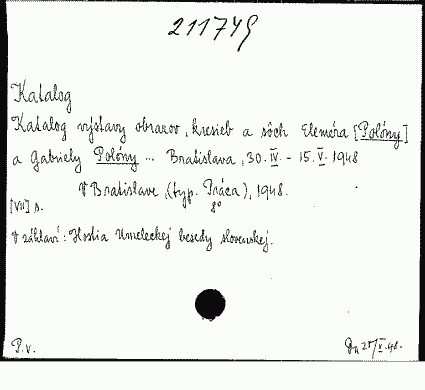 211749
Katalog
Katalog výstavy obrazov, kresieb a sôch Eleméra [Polóny]
a Gabriely Polóny ... Bratislava, 30. IV. - 15. V. 1948
V Bratislave, (typ. Práca), 1948.
[VII] s. 8°
V záhlaví: Hostia Umeleckej besedy slovenskej.
P.v.